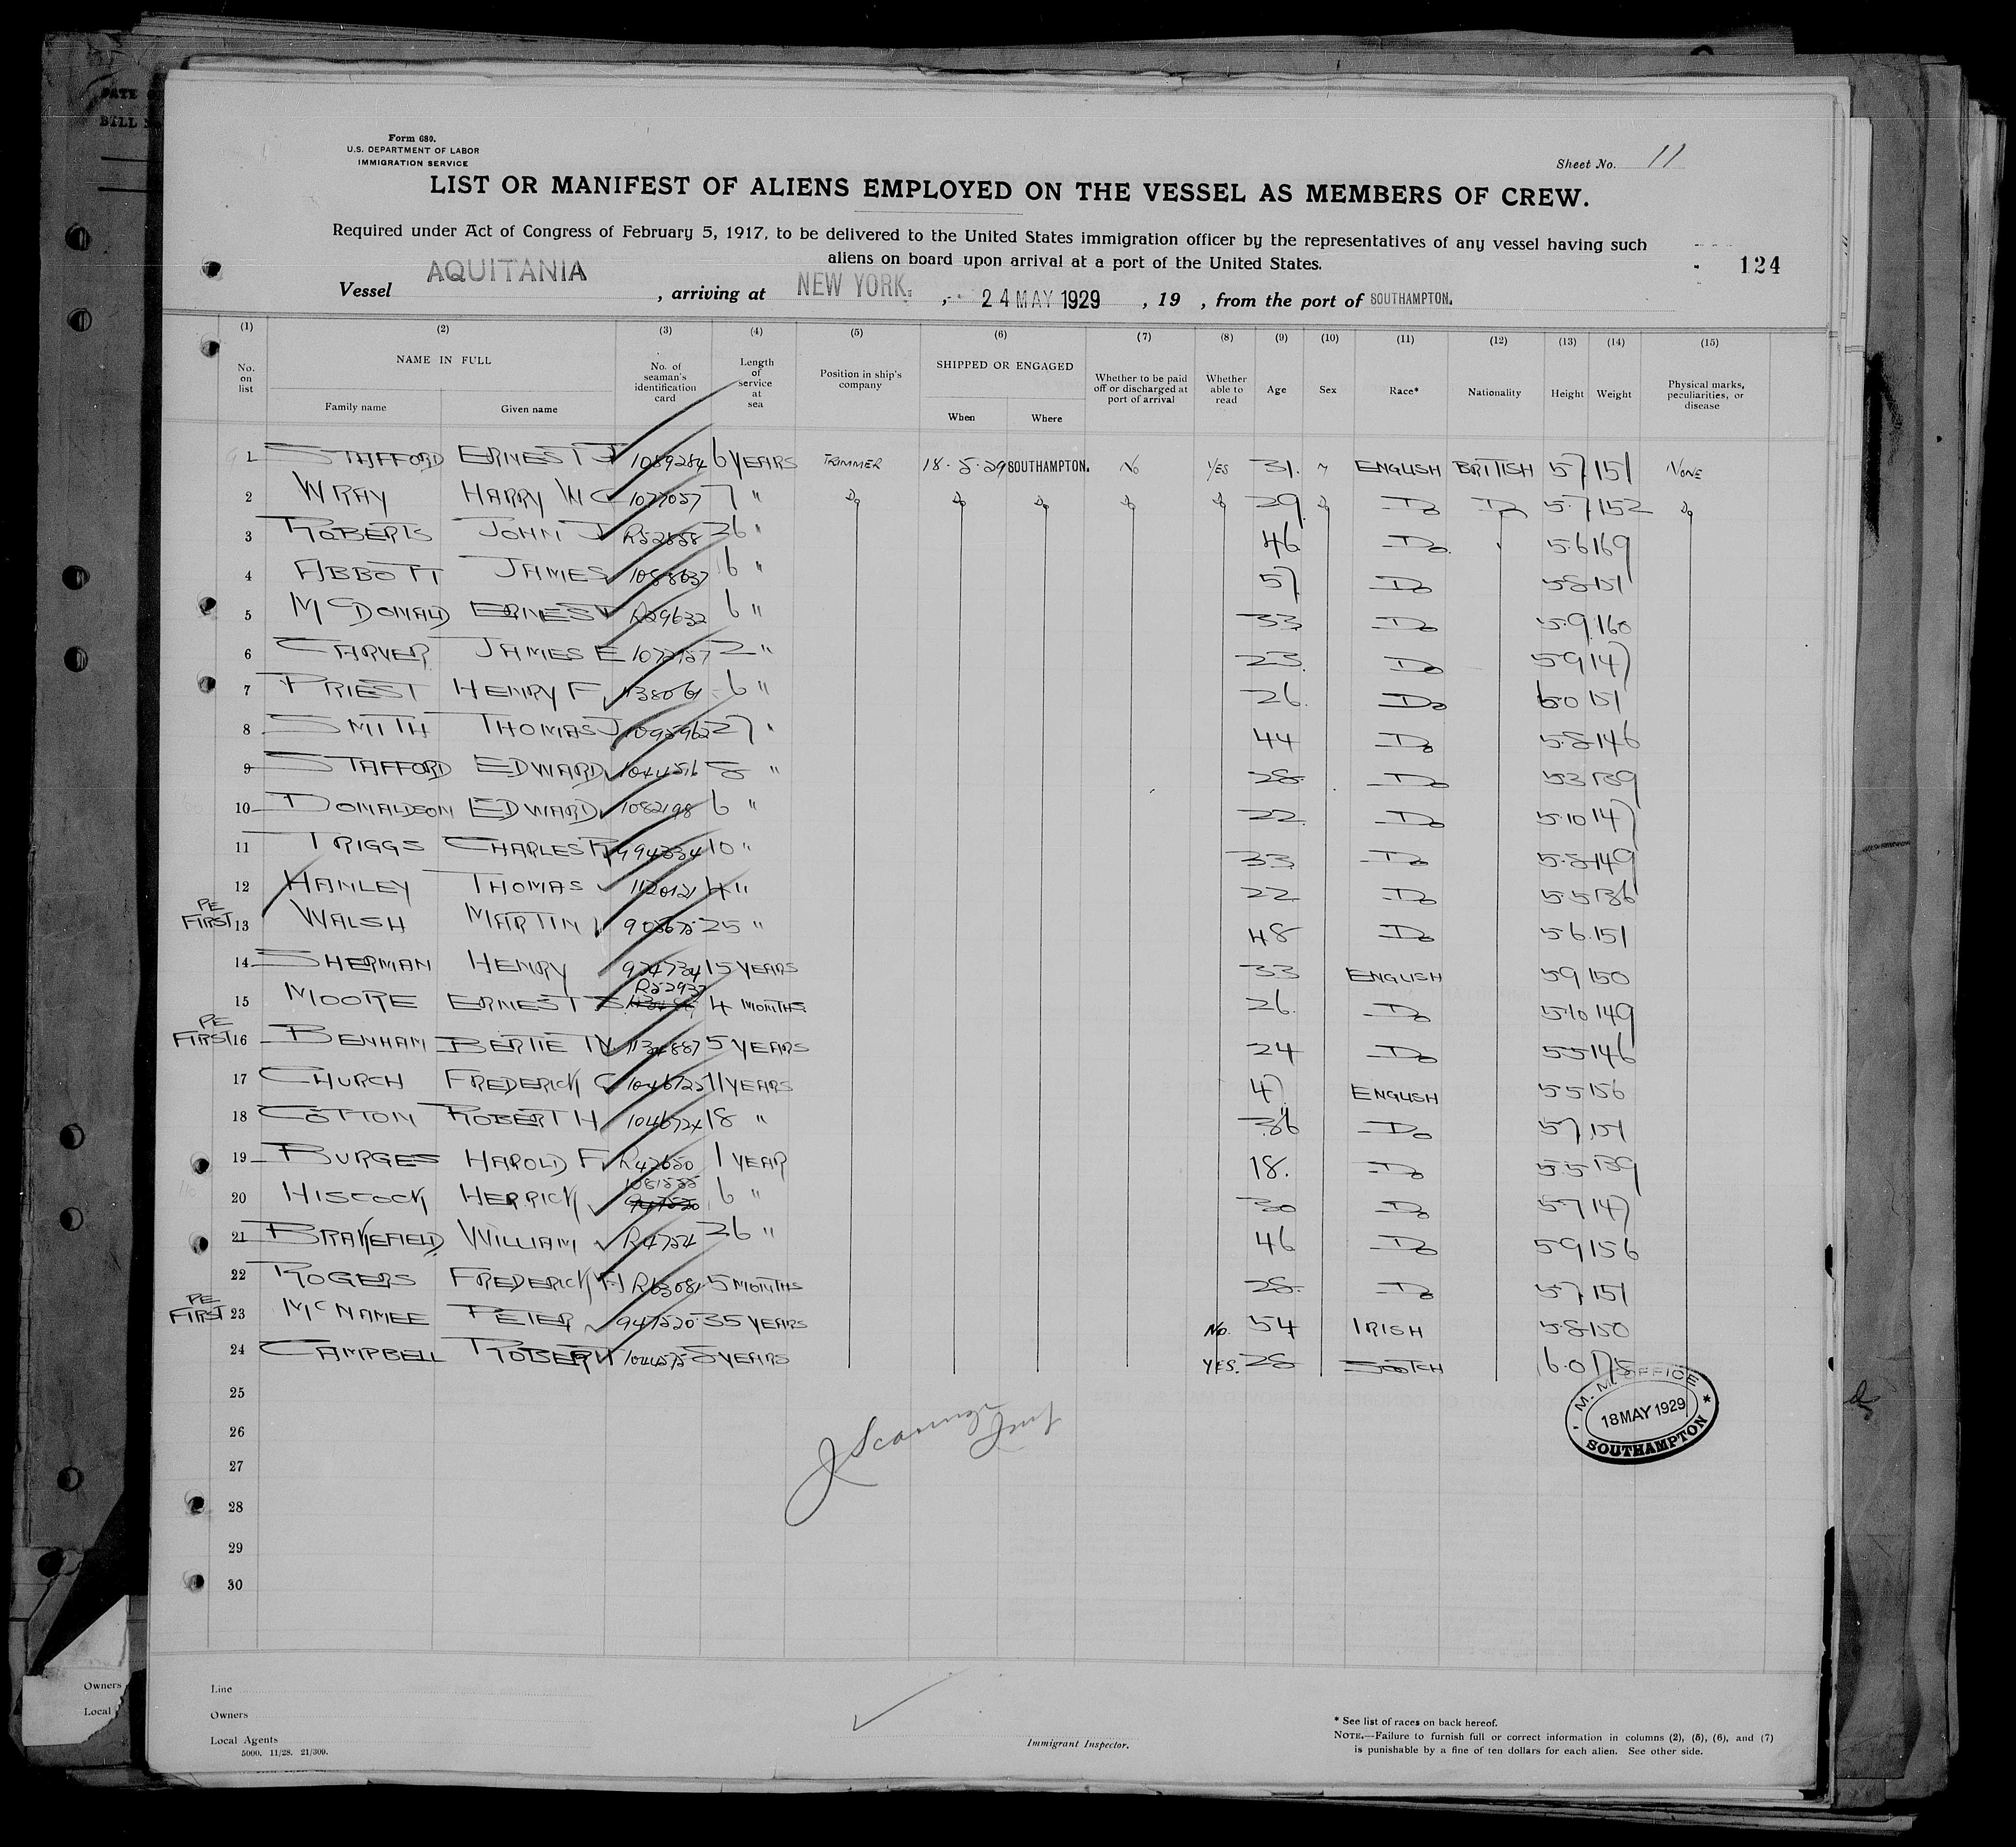 Form 680.
U.S. DEPARTMENT OF LABOR
IMMIGRATION SERVICE
Sheet No. 11
LIST OR MANIFEST OF ALIENS EMPLOYED ON THE VESSEL AS MEMBERS OF CREW.
Required under Act of Congress of February 5, 1917, to be delivered to the United States immigration officer by the representatives of any vessel having such
aliens on board upon arrival at a port of the United States.
124
Vessel AQUITANIA , arriving at NEW YORK. , 24 MAY 1929 , 19 , from the port of SOUTHAMPTON.
(1) (2) (3) (4) (5) (6) (7) (8) (9) (10) (11) (12) (13) (14) (15)
No. on list NAME IN FULL Family name Given name No. of seaman's identification card Length of service at sea Position in ship's company SHIPPED OR ENGAGED When Where Whether to be paid off or discharged at port of arrival Whether able to read Age Sex Race* Nationality Height Weight Physical marks, peculiarities, or disease
1 STAFFORD ERNEST J 1089284 6 YEARS TRIMMER 18-5-29 SOUTHAMPTON. No YES 31. M ENGLISH BRITISH 5 7 151 NONE
2 WRAY HARRY W C 1077057 7 " Do Do Do Do Do 29 Do Do Do 5.7 152 Do
3 ROBERTS JOHN J 26 " 46 Do 5.6 169
4 ABBOTT JAMES 1088637 6 " 57 Do 5.8 151
5 McDONALD ERNEST R29632 6 " 33 Do 5.9 160
6 CARVER JAMES E 2 " 23 Do 5 9 147
7 PRIEST HENRY F 6 " 26 Do 6.0 151
8 SMITH THOMAS J 1095962 27 " 44 Do 5.8 146
9 STAFFORD EDWARD 8 " 28 Do 5 3 139
10 DONALDSON EDWARD 1082198 6 " 22 Do 5.10 147
11 TRIGGS CHARLES R 994334 10 " 33 Do 5.8 149
12 HANLEY THOMAS 1120121 4 " 22 Do 5.5 136
PE FIRST 13 WALSH MARTIN 25 " 48 Do 5.6 151
14 SHERMAN HENRY 15 YEARS 33 ENGLISH 5 9 150
15 MOORE ERNEST S R52937 4 MONTHS 26 Do 5.10 149
PE FIRST 16 BENHAM BERTIE W. 1134887 5 YEARS 24 Do 5 5 146
17 CHURCH FREDERICK C 11 YEARS 47 ENGLISH 5 5 156
18 COTTON ROBERT H 1046724 18 " 36 Do 5 7 151
19 BURGES HAROLD F 1 YEAR 18. Do 5.5 139
20 HISCOCK HERRICK 6 " 30 Do 5.7 147
21 BRAKEFIELD WILLIAM R4724 26 " 46 Do 5 9 156
22 ROGERS FREDERICK H R63081 5 MONTHS 28 Do 5 7 151
PE FIRST 23 McNAMEE PETER 947520 35 YEARS No. 54 IRISH 5.8 150
24 CAMPBELL ROBERT 8 YEARS YES. 28 SCOTCH 6.0 175
25
M. M. OFFICE
18 MAY 1929
SOUTHAMPTON
26
27
28
29
30
Line
Owners
Local Agents
5000. 11/28. 21/309.
Immigrant Inspector.
* See list of races on back hereof.
NOTE.—Failure to furnish full or correct information in columns (2), (5), (6), and (7)
is punishable by a fine of ten dollars for each alien. See other side.
Owners
Local